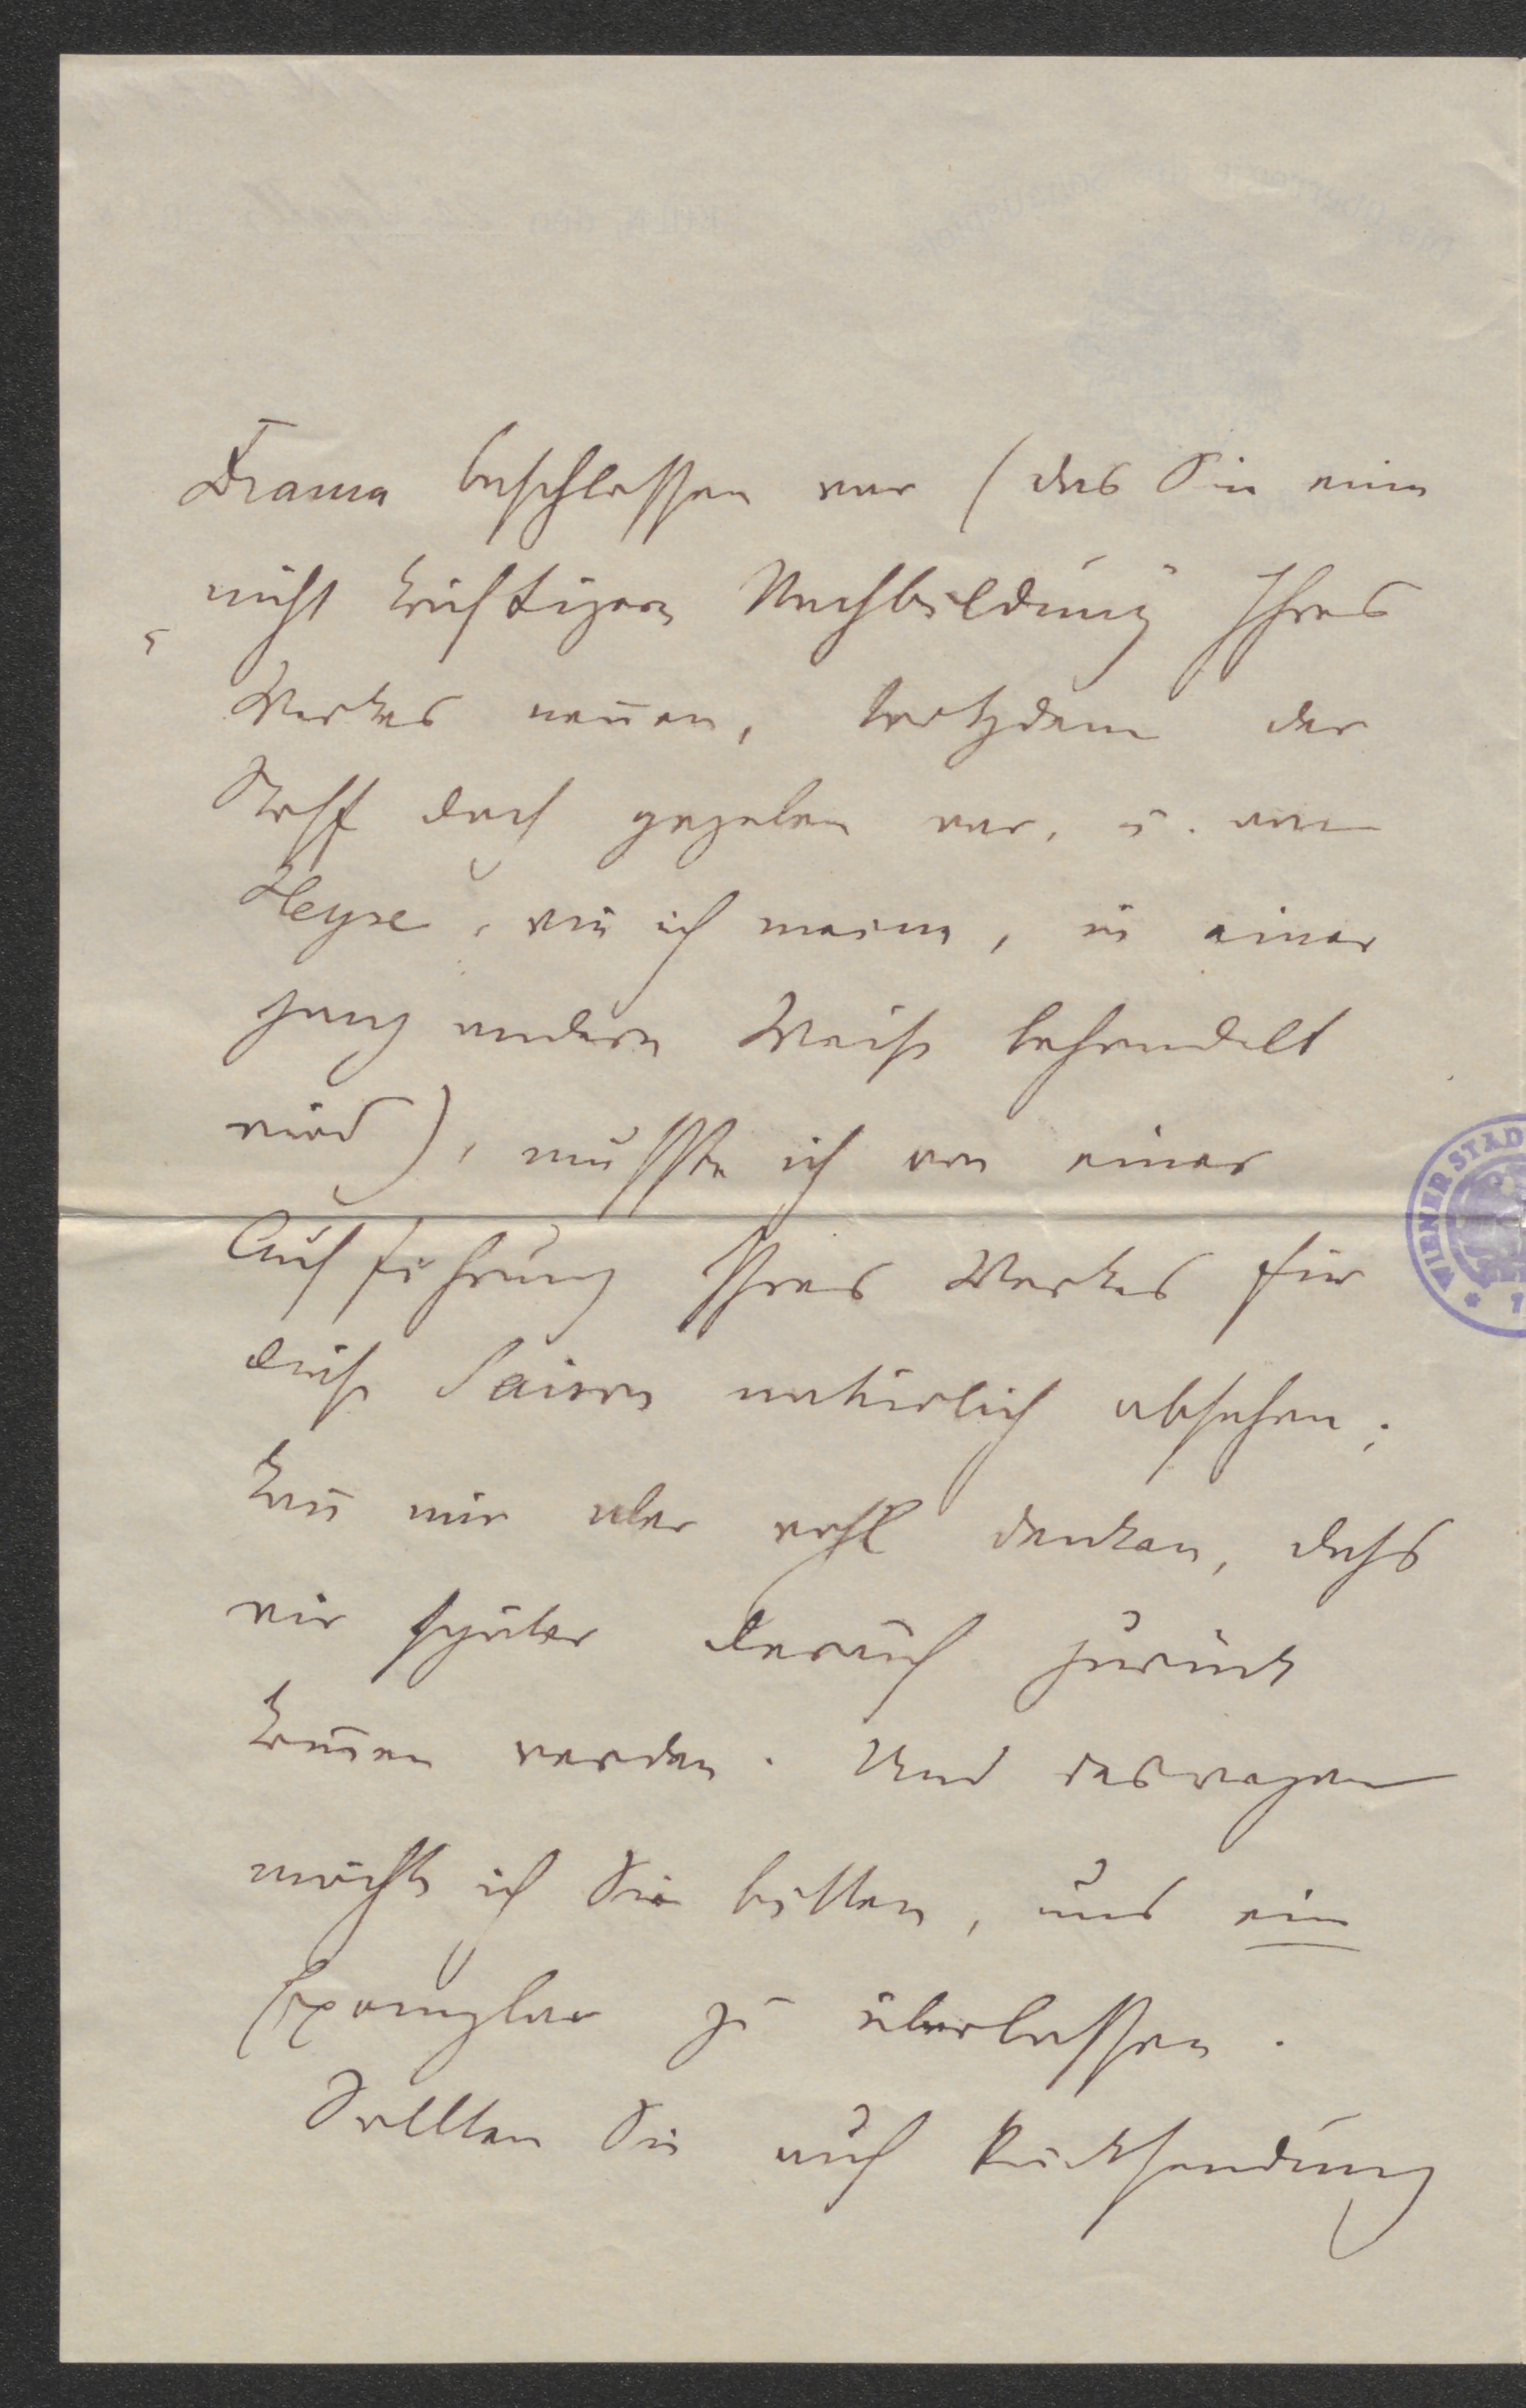 Drama beschlossen war (das Sie eine
nicht kräftigere Nachbildung Ihres
Werkes nennen, trotzdem der
Stoff doch gegeben war, u. von
Heyse, wie ich meine, in einer
ganz andern Weise behandelt
wird), mußte ich von einer
Aufführung Ihres Werkes für
diese Saison natürlich absehen;
kann mir aber wohl denken, dass
wir später darauf zurück
kommen werden. Und deswegen
möchte ich Sie bitten, uns ein
Exemplar zu überlassen.
Sollten Sie auf Rücksendung
WIENER STÄD